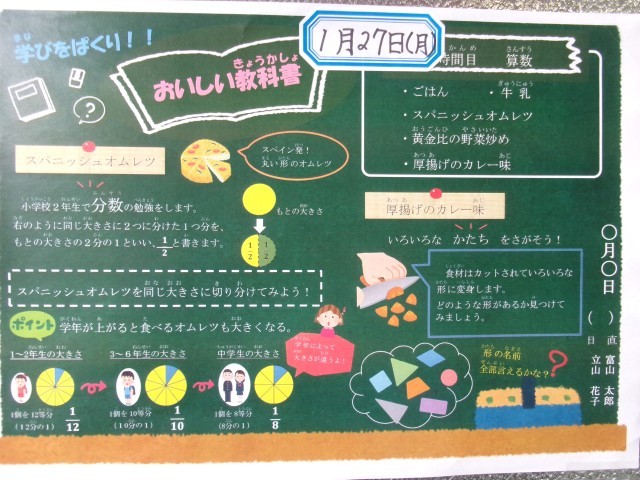 まな
学びをぱくり！！
1月27日(月)
きょうかしょ
おいしい教科書
かんめ さんすう
時間目 算数
ぎゅうにゅう
・ごはん ・牛乳
・スパニッシュオムレツ
おうごんひ やさいいた
・黄金比の野菜炒め
あつあ あじ
・厚揚げのカレー味
スパニッシュオムレツ
スペイン発！
丸い形のオムレツ
小学校２年生で分数の勉強をします。
右のように同じ大きさに２つに分けた１つ分を、
もとの大きさの２分の１といい、1/2と書きます。
もとの大きさ
1/2 1/2
スパニッシュオムレツを同じ大きさに切り分けてみよう！
ポイント 学年が上がると食べるオムレツも大きくなる。
学年によって
大きさが違うよ！
1～2年生の大きさ
1個を12等分
(12分の1)
1/12
3～6年生の大きさ
1個を10等分
(10分の1)
1/10
中学生の大きさ
1個を8等分
(8分の1)
1/8
あつあ あじ
厚揚げのカレー味
いろいろな かたち をさがそう！
食材はカットされていろいろな
形に変身します。
どのような形があるか見つけて
みましょう。
形の名前
全部言えるかな？
〇月〇日
( )
日直
富山 太郎
立山 花子